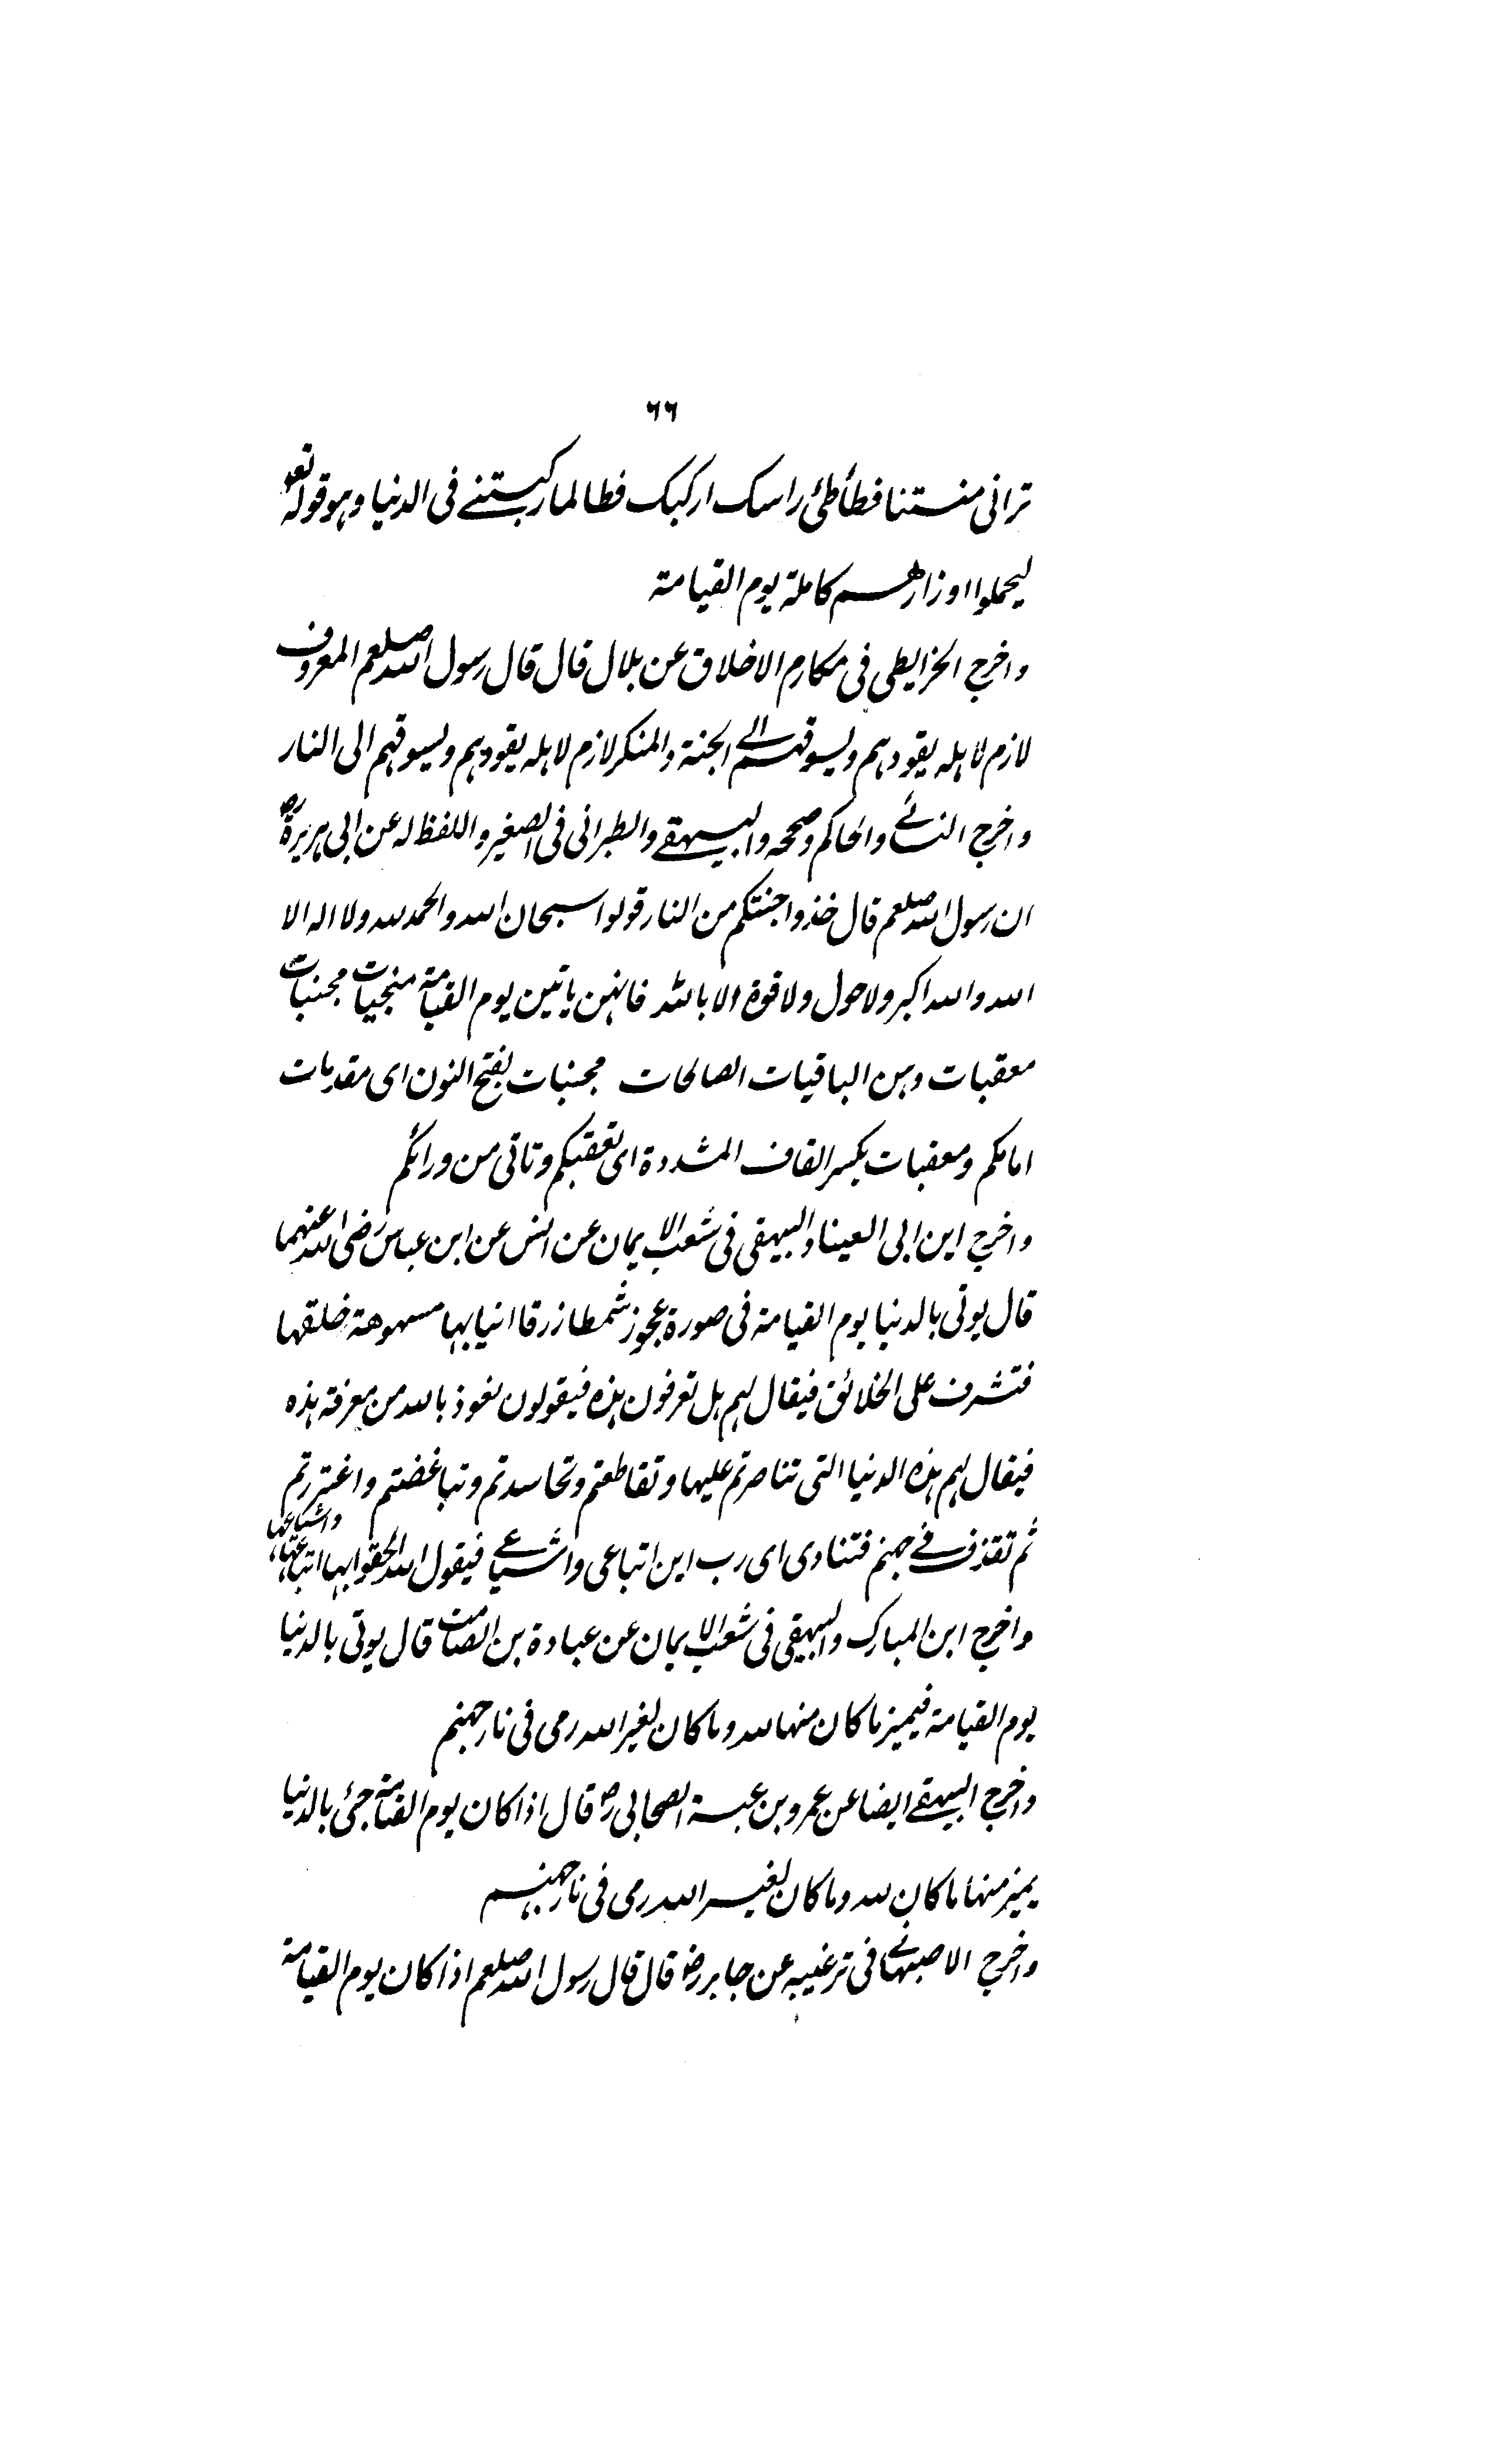 ٦٦
ترانى منستنا فطأطئ راسک ارکبک فطالما رکبتنے فى الدنيا وہو قولہ تعو
ليحملوا اوزارهم کاملة يوم القيامة
واخرج الخرايطى فى مکارم الاخلاق عن بلال قال قال رسول الله صلعم المعروف
لازم لاہلہ يقودہم ويسوقہم الے الجنة والمنکر لازم لاہلہ يقودہم ويسوقہم الى النار
واخرج النسائے والحاکم وصححہ والبيہقے والطبرانى فى الصغير واللفظ لہ عن ابى ہريرة رض
ان رسول الله صلعم قال خذوا جنتکم من النار قولوا سبحان الله والحمد لله ولا الہ الا
الله والله اکبر ولا حول ولا قوة الا بالله فانہن ياتين يوم القيامة منجيات مجنبات
معقبات وہن الباقيات الصالحات مجنبات بفتح النون اى مقدمات
امامکم ومعقبات بکسر القاف المشددة اى تعقبکم وتاتى من ورائکم
واخرج ابن ابى العينا والبيہقى فى شعب الايمان عن انس عن ابن عباس رضى الله عنہما
قال يوتى بالدنيا يوم القيامة فى صورة عجوز شمطا زرقا انيابہا مسهوهة خلقہا
فتشرف على الخلائق فيقال لہم ہل تعرفون ہذہ فيقولون نعوذ بالله من معرفة ہذہ
فيقال لہم ہذہ الدنيا التى تناصرتم عليہا وتقاطعتم وتحاسدتم وتباغضتم واغتررتم
ثم تقذف فے جہنم فتنادى اى رب اين اتباعى واشياعے فيقول الله الحقوا بہا اتباعہا واشياعہا
واخرج ابن المبارک والبيہقى فى شعب الايمان عن عبادة بن الصامت قال يوتى بالدنيا
يوم القيامة فيميز ما کان منہا لله وما کان لغير الله رمى فى نار جہنم
واخرج البيہقے ايضا عن عمرو بن عبسة الصحابى رض قال اذا کان يوم القيامة جئ بالدنيا
يميز منہا ما کان لله وما کان لغير الله رمى فى نار جہنم
واخرج الاصبہانے فى ترغيبہ عن جابر رض قال قال رسول الله صلعم اذا کان يوم القيامة